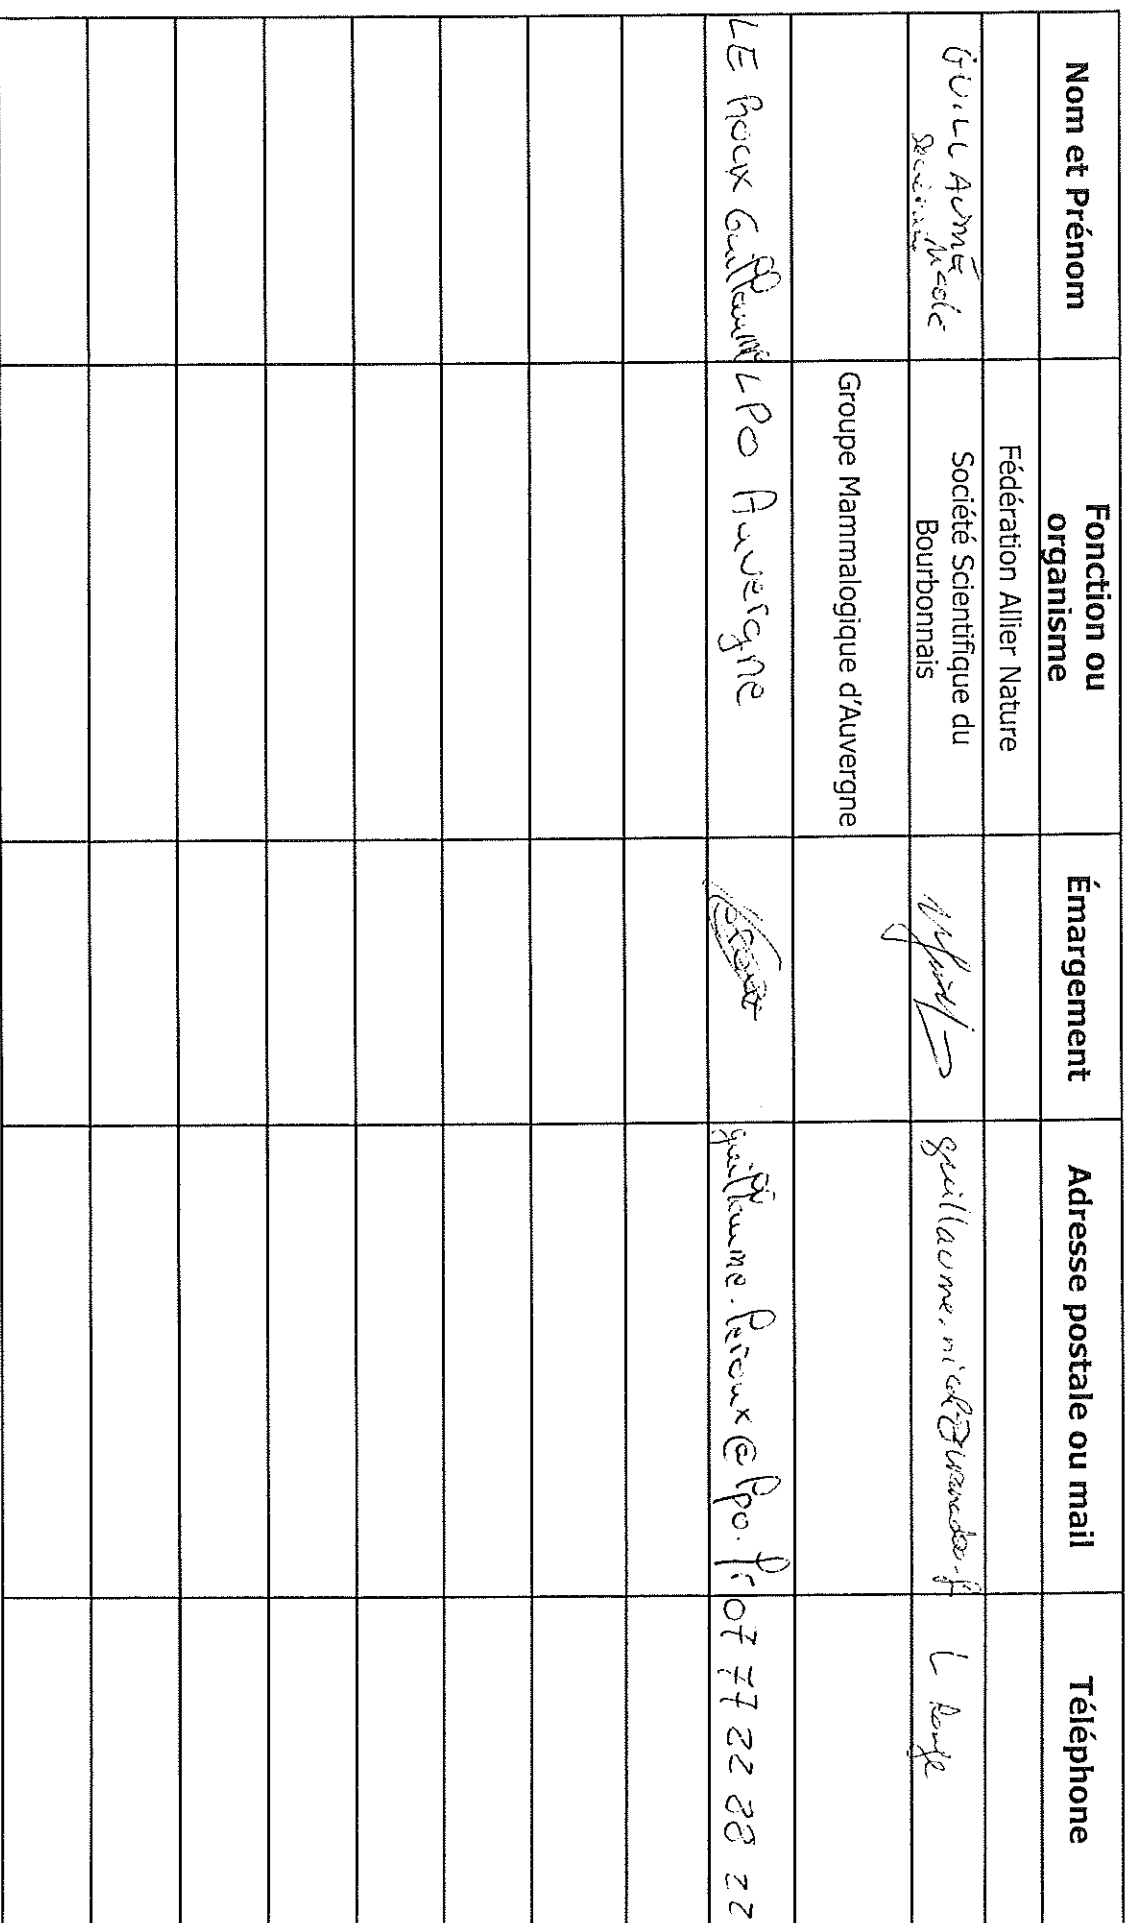 Nom et Prénom
Fonction ou organisme
Émargement
Adresse postale ou mail
Téléphone
Fédération Allier Nature
GUILLAUME
Nicole
Société Scientifique du Bourbonnais
L Rouge
Groupe Mammalogique d'Auvergne
LE ROUX Guillaume
LPO Auvergne
guillaume.leroux@lpo.fr
07 77 22 88 22